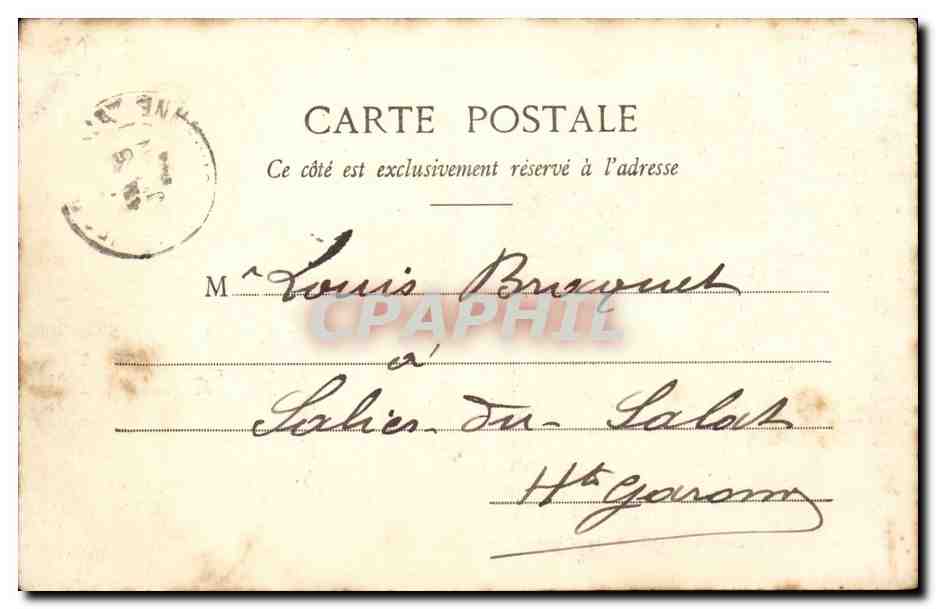 CARTE POSTALE
Ce côté est exclusivement réservé à l'adresse
Mr Louis
CPAPHIL
à
Salies-du-Salat
Hte Garonne